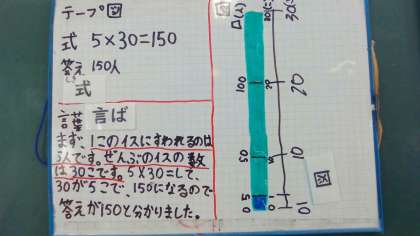 テープ図
式 5×30=150
答え 150人
式
言葉 言ば
まず、1このイスにすわれるのは
5人です。ぜんぶのイスの数
は30こです。5×30=して、
30が5こで、150になるので
答えが150と分かりました。
図
0 5 50 100
0 1 10 20 30(こ)
図